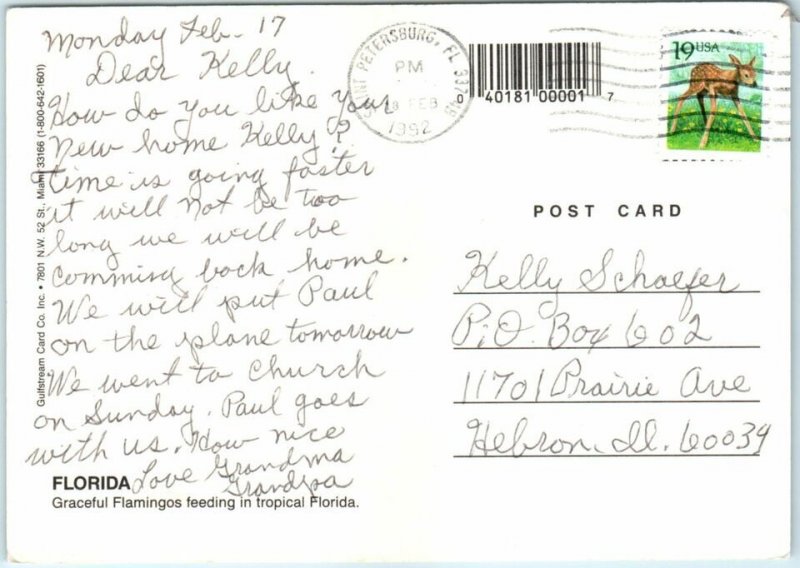 Monday Feb. 17
Dear Kelly,
How do you like your
New home Kelly?
time is going faster
it will not be too
long we will be
comming back home.
We will put Paul
on the plane tomorrow
We went to Church
on Sunday. Paul goes
with us. How nice
Love Grandma
Grandpa
FLORIDA
Graceful Flamingos feeding in tropical Florida.
Gulfstream Card Co. Inc. • 7801 N.W. 52 St., Miami 33166 (1-800-642-1601)
SAINT PETERSBURG, FL
PM
18 FEB
1992
40181 00001 7
19 USA
POST CARD
Kelly Schaefer
P.O. Box 602
11701 Prairie Ave
Hebron, Il. 60034